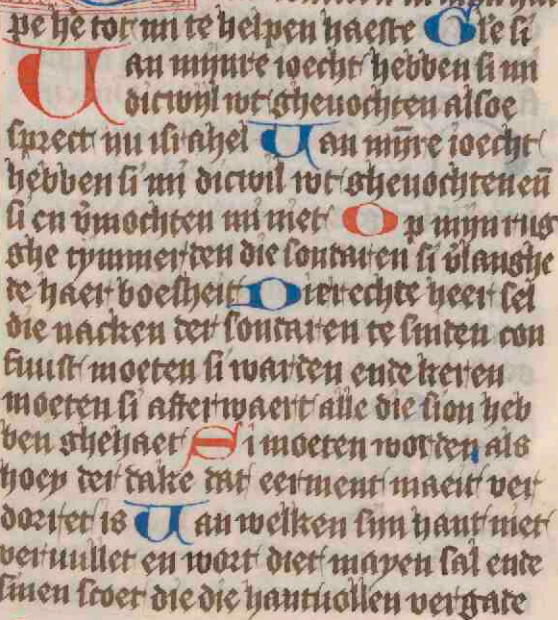 pe he tot mi te helpen haeste Gle si
Van mijnre ioecht hebben si mi
dicwijl wt ghevochten alsoe
sprect nu israhel Van mijre ioecht
hebben si mi dicwil wt ghevochten eñ
si en v̄mochten mi niet Op mijn rug
ghe tymmerden die sondaren si v̄langhe
de haer boesheit Die rechte heer sel
die nacken der sondaren te sniden con
fuust moeten si warden ende keren
moeten si afterwaert alle die sion heb
ben ghehaet Si moeten worden als
hoey der dake dat eerment maeit ver
dorret is Van welken sijn hant niet
vervullet en wort diet mayen sal ende
sinen scoet die die hantvollen vergade